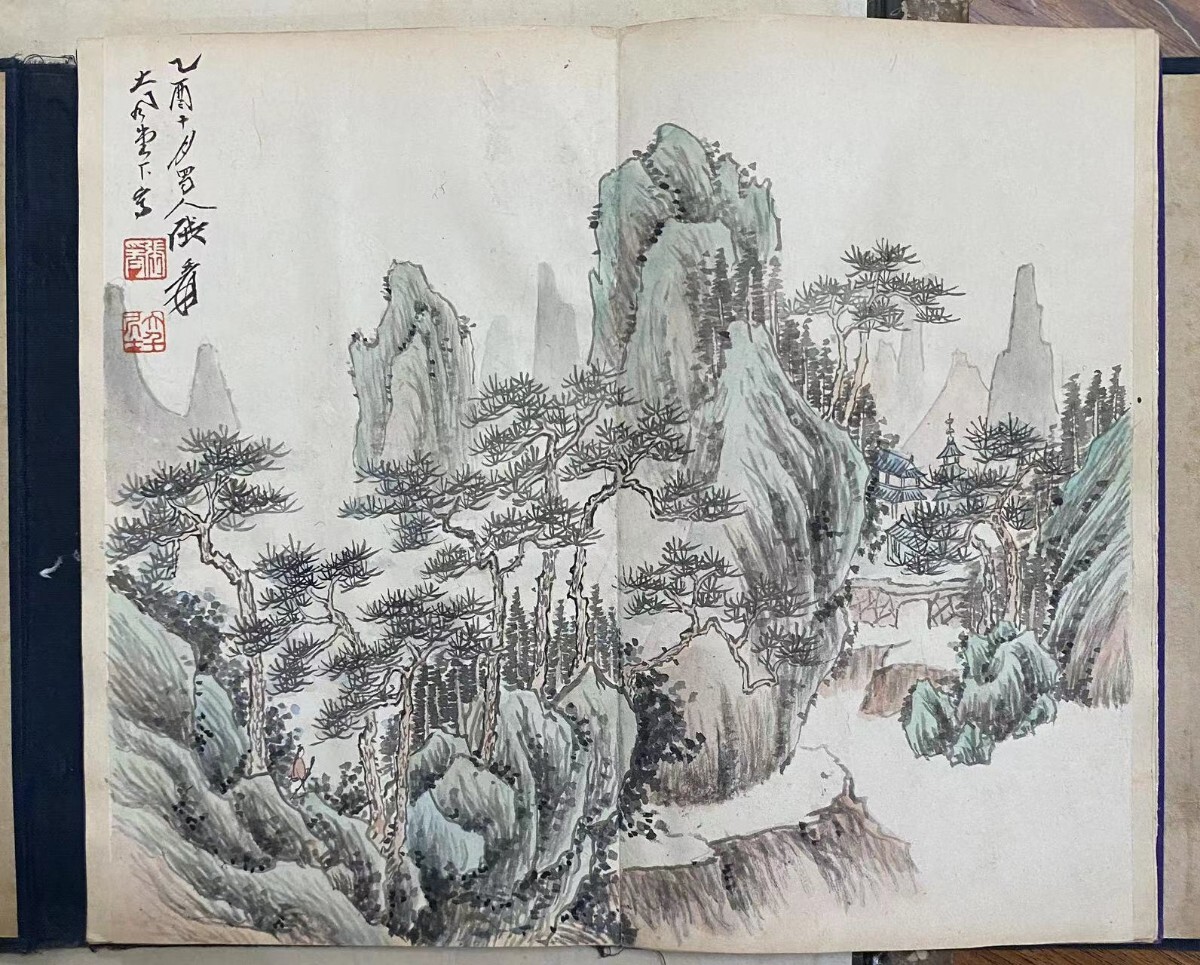 乙酉十月蜀人張爰
大風堂下寫
張爰
大千居士